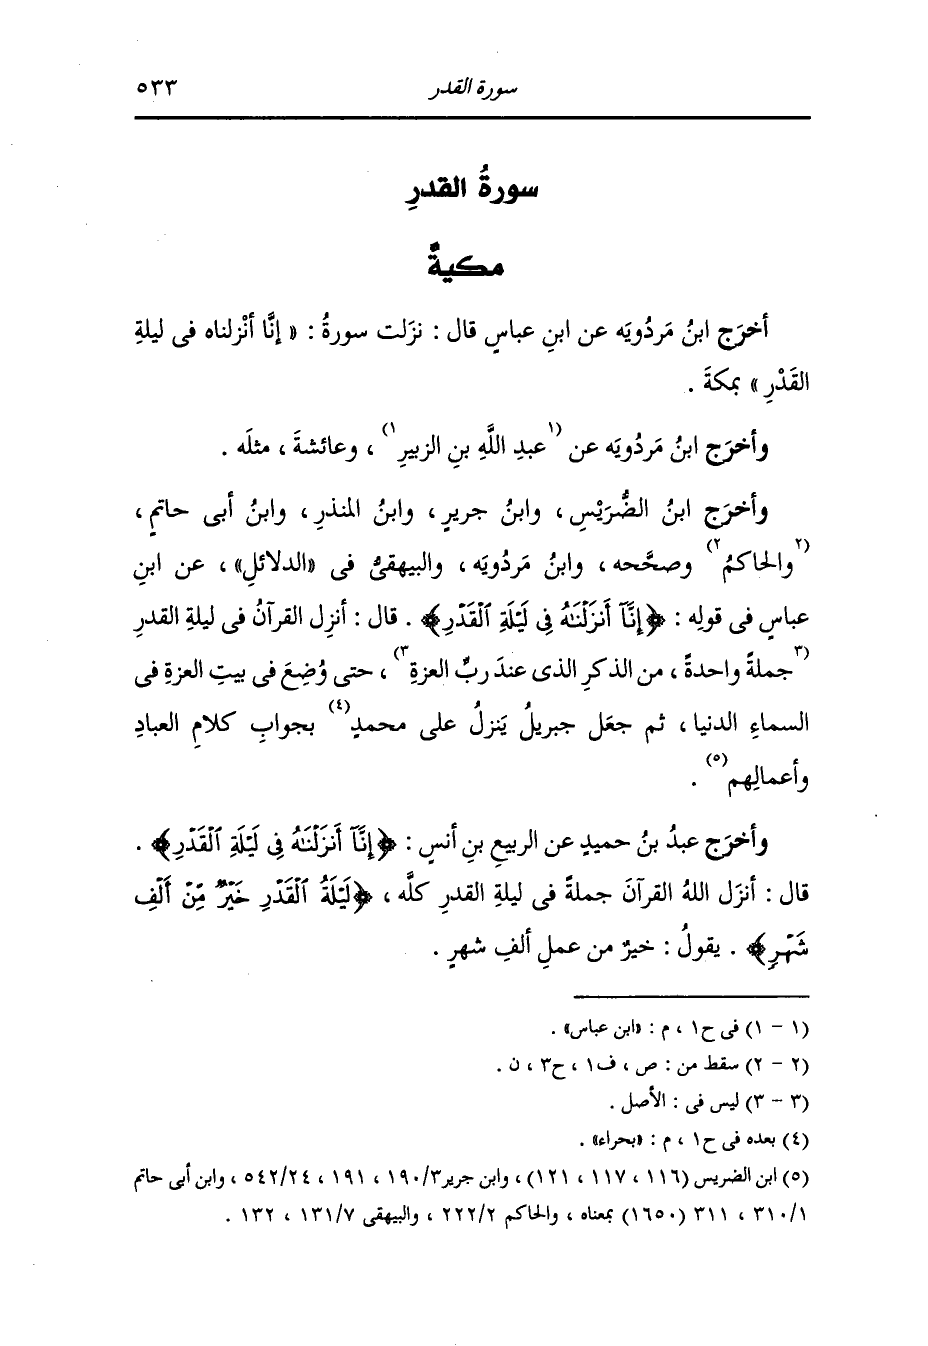 سورة القدر ٥٣٣
سورةُ القدرِ
مكيةٌ
أخرَج ابنُ مَردُويَه عن ابنِ عباسٍ قال : نزَلت سورةُ : « إنَّا أنْزلناه فى ليلةِ
القَدْرِ » بمكةَ .
وأخرَج ابنُ مَردُويَه عن (١عبدِ اللَّهِ بنِ الزبيرِ١) ، وعائشةَ ، مثلَه .
وأخرَج ابنُ الضُّرَيْسِ ، وابنُ جريرٍ ، وابنُ المنذرِ ، وابنُ أبى حاتمٍ ،
(٢والحاكمُ٢) وصحَّحه ، وابنُ مَردُويَه ، والبيهقىُّ فى «الدلائلِ» ، عن ابنِ
عباسٍ فى قولِه : ﴿إِنَّآ أَنزَلْنَٰهُ فِى لَيْلَةِ ٱلْقَدْرِ﴾ . قال : أُنزِل القرآنُ فى ليلةِ القدرِ
(٣جملةً واحدةً ، من الذكرِ الذى عندَ ربِّ العزةِ٣) ، حتى وُضِعَ فى بيتِ العزةِ فى
السماءِ الدنيا ، ثم جعَل جبريلُ يَنزلُ على محمدٍ(٤) بجوابِ كلامِ العبادِ
وأعمالِهم(٥) .
وأخرَج عبدُ بنُ حميدٍ عن الربيعِ بنِ أنسٍ : ﴿إِنَّآ أَنزَلْنَٰهُ فِى لَيْلَةِ ٱلْقَدْرِ﴾ .
قال : أنزَل اللهُ القرآنَ جملةً فى ليلةِ القدرِ كلَّه ، ﴿لَيْلَةُ ٱلْقَدْرِ خَيْرٌ مِّنْ أَلْفِ
شَهْرٍ﴾ . يقولُ : خيرٌ من عملِ ألفِ شهرٍ .
(١ - ١) فى ح١ ، م : «ابن عباس» .
(٢ - ٢) سقط من : ص ، ف١ ، ح٣ ، ن .
(٣ - ٣) ليس فى : الأصل .
(٤) بعده فى ح١ ، م : «بحراء» .
(٥) ابن الضريس (١١٦ ، ١١٧ ، ١٢١) ، وابن جرير٣/ ١٩٠ ، ١٩١ ، ٥٤٢/٢٤ ، وابن أبى حاتم
٣١٠/١ ، ٣١١ (١٦٥٠) بمعناه ، والحاكم ٢٢٢/٢ ، والبيهقى ١٣١/٧ ، ١٣٢ .